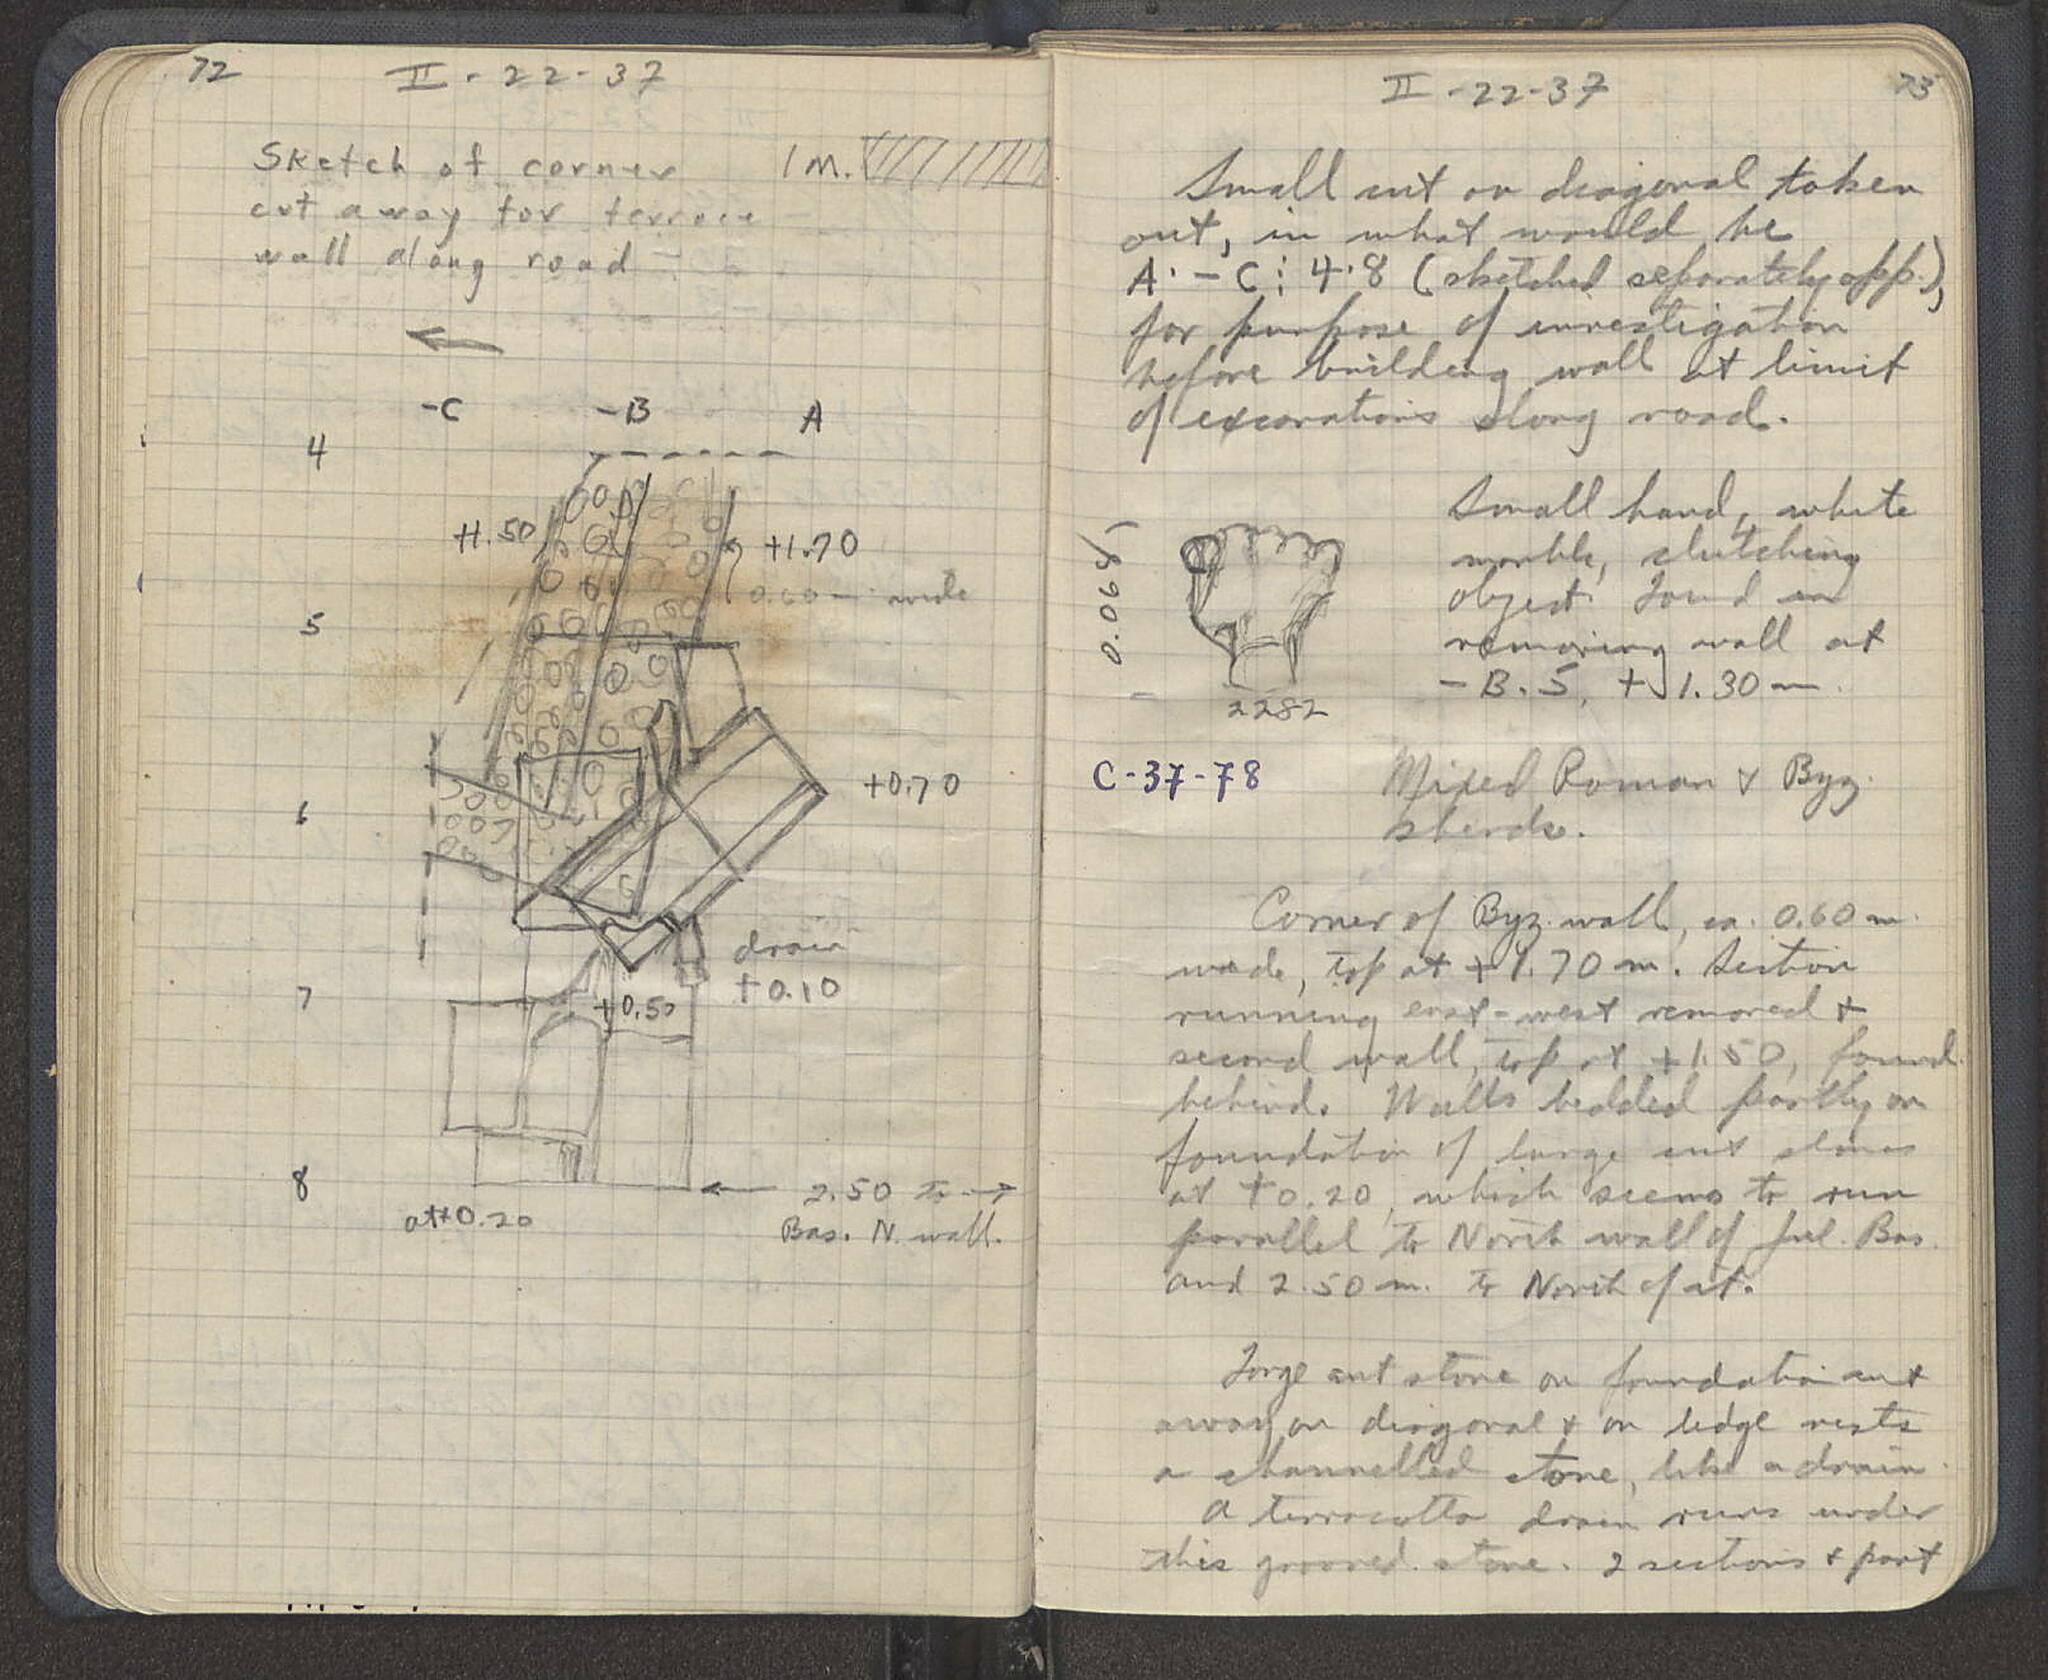 72
II - 22 - 37
Sketch of corner
cut away for terrace
wall along road
1 M.
-C -B A
4
+1.50
+1.70
0.60 m wide
5
+0.70
6
drain
+0.10
7
+0.50
8
2.50 to
Bas. N. wall.
at +0.20
II - 22 - 37
73
Small cut on diagonal taken
out, in what would be
A · - C : 4·8 (sketched separately opp.),
for purpose of investigation
before building wall at limit
of excavations along road.
Small hand, white
marble, clutching
object. Found in
removing wall at
- B. 5, + 1.30 m.
0.068
2282
C - 37 - 78
Mixed Roman & Byz.
sherds.
Corner of Byz. wall, ca. 0.60 m.
wide, top at + 1.70 m. Section
running east-west removed &
second wall, top at +1.50, found
behind. Walls bedded partly on
foundation of large cut stones
at +0.20, which seems to run
parallel to North wall of Jul. Bas.
and 2.50 m. to North of it.
Large cut stone on foundation cut
away on diagonal & on ledge rests
a channelled stone, like a drain.
A terracotta drain runs under
this grooved stone. 2 sections & part